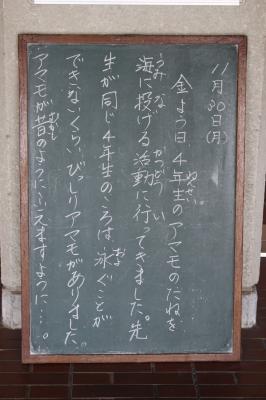 11月30日(月)
金よう日、4年生のアマモのたねを
海に投げる活動に行ってきました。先
生が同じ4年生のころは、泳ぐことが
できないくらい、びっしりアマモがありました。
アマモが昔のように、ふえますように…。